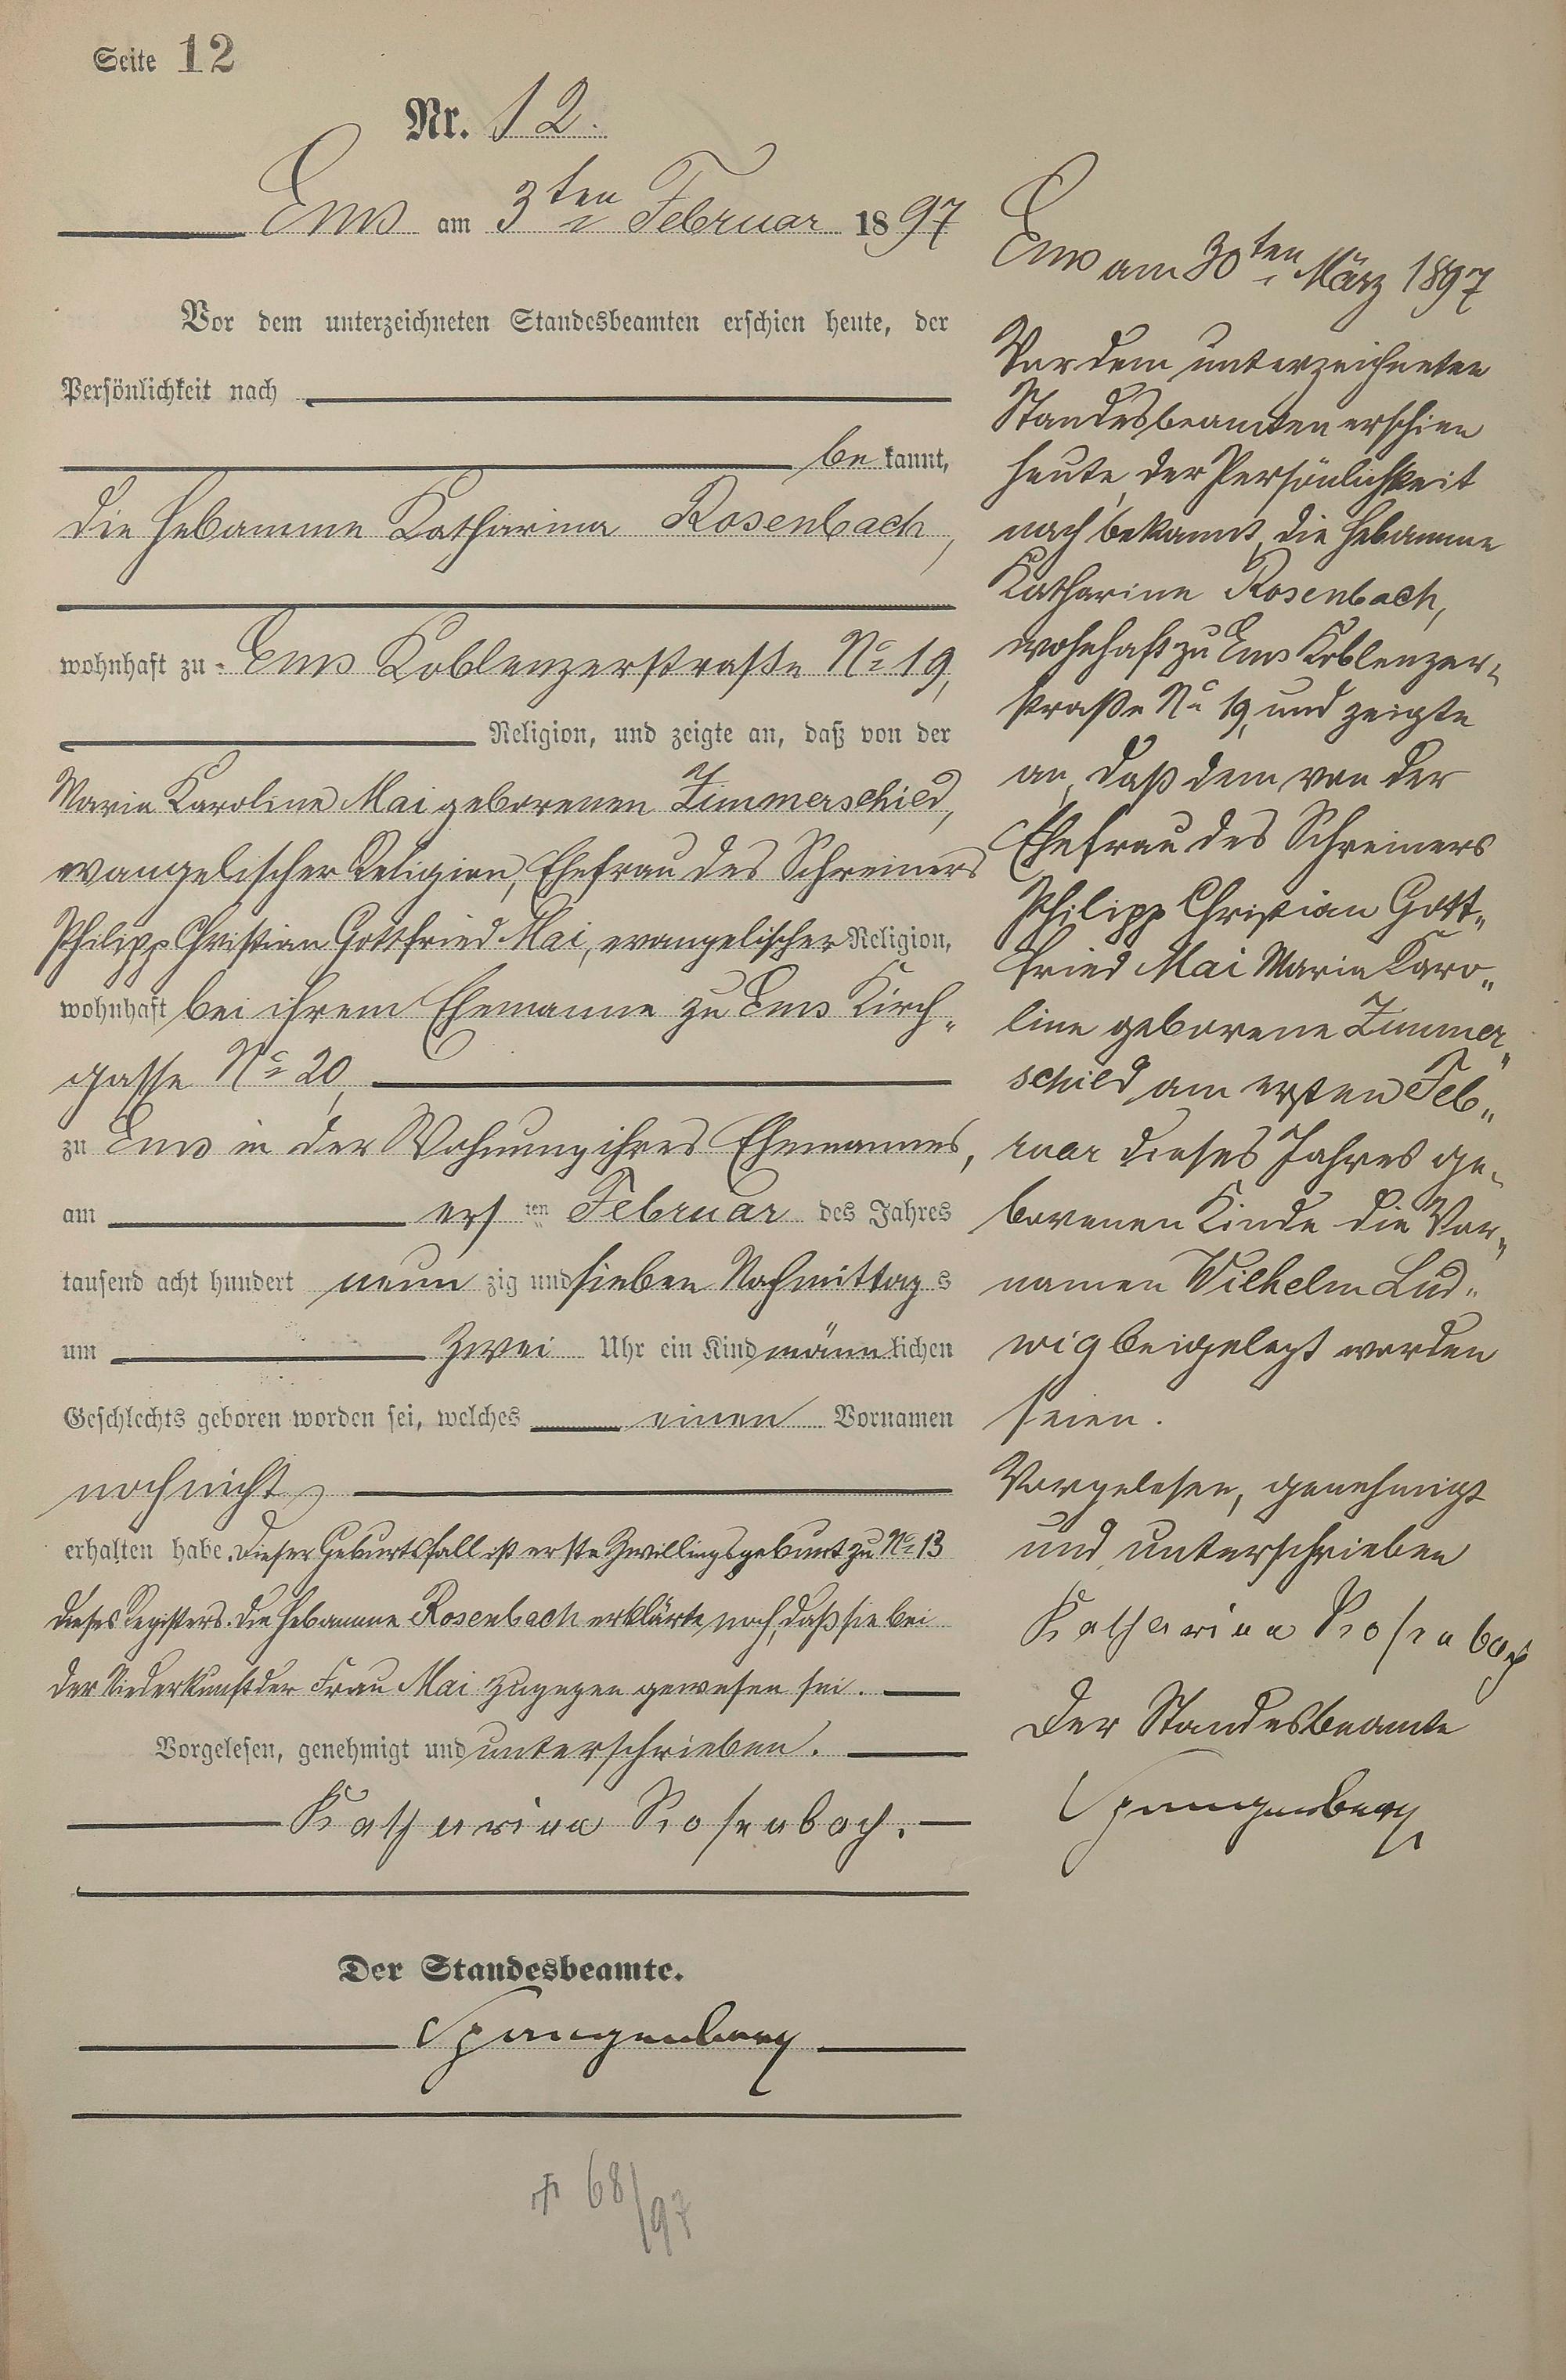 Seite 12
Nr. 12.
Ems am 3ten Februar 1897
Vor dem unterzeichneten Standesbeamten erschien heute, der
Persönlichkeit nach
be kannt,
die Hebamme Katharina Rosenbach,
wohnhaft zu Ems Koblenzerstraße No 19,
Religion, und zeigte an, daß von der
Maria Karoline Mai geborenen Zimmerschied,
evangelischer Religion, Ehefrau des Schreiners
Philipp Christian Gottfried Mai, evangelischer Religion,
wohnhaft bei ihrem Ehemanne zu Ems Kirch„
gasse No 20,
zu Ems in der Wohnung ihres Ehemannes,
am ers ten Februar des Jahres
tausend acht hundert neun zig und sieben Nachmittag s
um zwei Uhr ein Kind männ lichen
Geschlechts geboren worden sei, welches einen Vornamen
noch nicht
erhalten habe. Dieser Geburtsfall ist erste Zwillingsgeburt zu No 13
dieses Registers. Die Hebamme Rosenbach erklärte noch, daß sie bei
der Niederkunft der Frau Mai zugegen gewesen sei.
Vorgelesen, genehmigt und unterschrieben.
Katharina Rosenbach.
Der Standesbeamte.
Spangenberg
+ 68/97
Ems am 30ten März 1897
Vor dem unterzeichneten
Standesbeamten erschien
heute, der Persönlichkeit
nach bekannt, die Hebamme
Katharina Rosenbach,
wohnhaft zu Ems Koblenzer„
straße No 19, und zeigte
an, daß dem von der
Ehefrau des Schreiners
Philipp Christian Gott„
fried Mai Maria Karo„
line geborene Zimmer„
schied am ersten Feb„
ruar dieses Jahres ge„
borenen Kinde die Vor„
namen Wilhelm Lud„
wig beigelegt worden
seien.
Vorgelesen, genehmigt
und unterschrieben
Katharina Rosenbach
Der Standesbeamte
Spangenberg